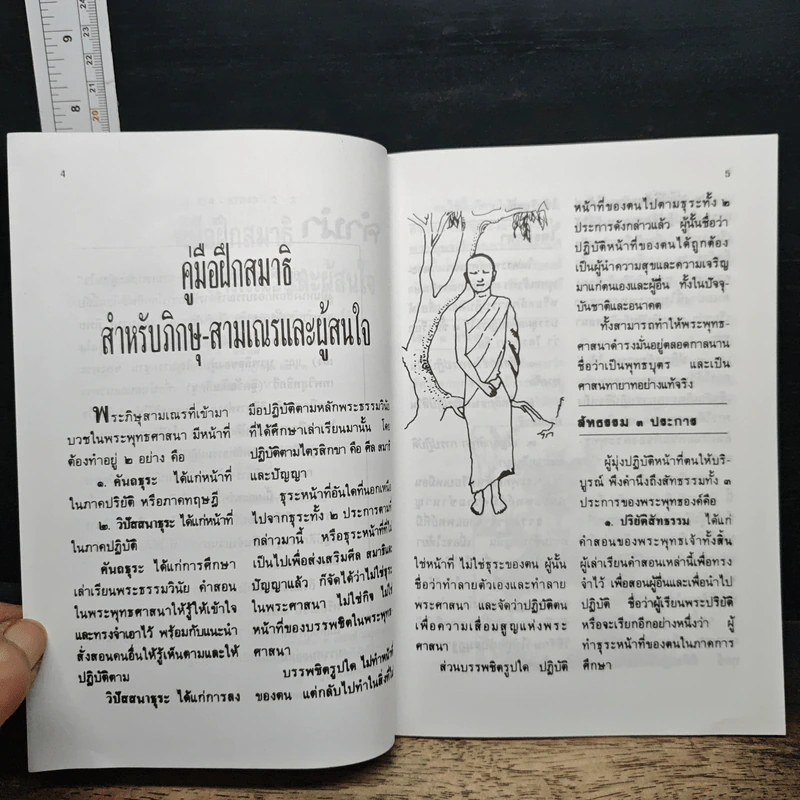 4
คู่มือฝึกสมาธิ
สำหรับภิกษุ-สามเณรและผู้สนใจ
พระภิษุสามเณรที่เข้ามา
บวชในพระพุทธศาสนา มีหน้าที่
ต้องทำอยู่ ๒ อย่าง คือ
๑. คันถธุระ ได้แก่หน้าที่
ในภาคปริยัติ หรือภาคทฤษฎี
๒. วิปัสสนาธุระ ได้แก่หน้าที่
ในภาคปฏิบัติ
คันถธุระ ได้แก่การศึกษา
เล่าเรียนพระธรรมวินัย คำสอน
ในพระพุทธศาสนาให้รู้ให้เข้าใจ
และทรงจำเอาไว้ พร้อมกับแนะนำ
สั่งสอนคนอื่นให้รู้เห็นตามและให้
ปฏิบัติตาม
วิปัสสนาธุระ ได้แก่การลง
มือปฏิบัติตามหลักพระธรรมวินัย
ที่ได้ศึกษาเล่าเรียนมานั้น โดย
ปฏิบัติตามไตรสิกขา คือ ศีล สมาธิ
และปัญญา
ธุระหน้าที่อันใดที่นอกเหนือ
ไปจากธุระทั้ง ๒ ประการตามที่
กล่าวมานี้ หรือธุระหน้าที่ที่ไม่
เป็นไปเพื่อส่งเสริมศีล สมาธิและ
ปัญญาแล้ว ก็จัดได้ว่าไม่ใช่ธุระ
ในพระศาสนา ไม่ใช่กิจ ไม่ใช่
หน้าที่ของบรรพชิตในพระพุทธ
ศาสนา
บรรพชิตรูปใด ไม่ทำหน้าที่
ของตน แต่กลับไปทำในสิ่งที่ไม่
5
ใช่หน้าที่ ไม่ใช่ธุระของตน ผู้นั้น
ชื่อว่าทำลายตัวเองและทำลาย
พระศาสนา และจัดว่าปฏิบัติตน
เพื่อความเสื่อมสูญแห่งพระ
ศาสนา
ส่วนบรรพชิตรูปใด ปฏิบัติ
หน้าที่ของตนไปตามธุระทั้ง ๒
ประการดังกล่าวแล้ว ผู้นั้นชื่อว่า
ปฏิบัติหน้าที่ของตนได้ถูกต้อง
เป็นผู้นำความสุขและความเจริญ
มาแก่ตนเองและผู้อื่น ทั้งในปัจจุ-
บันชาติและอนาคต
ทั้งสามารถทำให้พระพุทธ-
ศาสนาดำรงมั่นอยู่ตลอดกาลนาน
ชื่อว่าเป็นพุทธบุตร และเป็น
ศาสนทายาทอย่างแท้จริง
สัทธรรม ๓ ประการ
ผู้มุ่งปฏิบัติหน้าที่ตนให้บริ-
บูรณ์ พึงคำนึงถึงสัทธรรมทั้ง ๓
ประการของพระพุทธองค์คือ
๑. ปริยัติสัทธรรม ได้แก่
คำสอนของพระพุทธเจ้าทั้งสิ้น
ผู้เล่าเรียนคำสอนเหล่านี้เพื่อทรง
จำไว้ เพื่อสอนผู้อื่นและเพื่อนำไป
ปฏิบัติ ชื่อว่าผู้เรียนพระปริยัติ
หรือจะเรียกอีกอย่างหนึ่งว่า ผู้
ทำธุระหน้าที่ของตนในภาคการ
ศึกษา
9
8
22
21
20